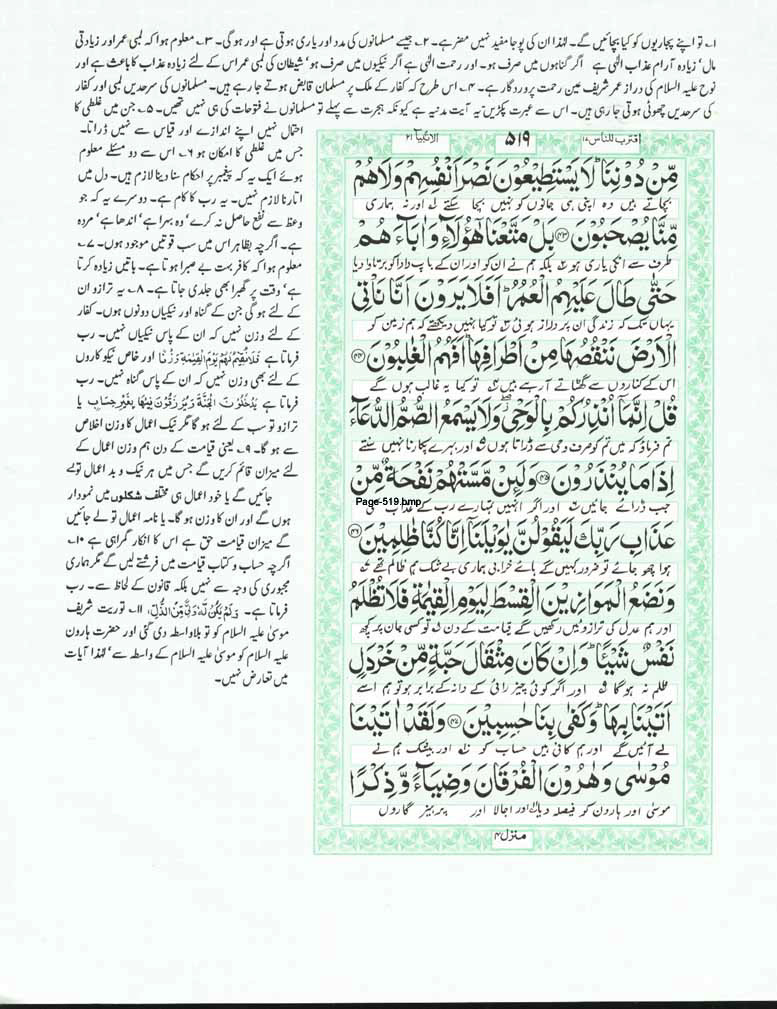 ۱؎ تو اپنے پجاریوں کو کیا بچائیں گے۔ لہٰذا ان کی پوجا مفید نہیں مضر ہے۔ ۲؎ جیسے مسلمانوں کی مدد اور یاری ہوتی ہے اور ہو گی۔ ۳؎ معلوم ہوا کہ لمبی عمر اور زیادتی
مال' زیادہ آرام عذاب الٰہی ہے اگر گناہوں میں صرف ہو۔ اور رحمت الٰہی ہے اگر نیکیوں میں صرف ہو' شیطان کی لمبی عمر اس کے لئے زیادہ عذاب کا باعث ہے اور
نوح علیہ السلام کی دراز عمر شریف عین رحمت پروردگار ہے۔ ۴؎ اس طرح کہ کفار کے ملک پر مسلمان قابض ہوتے جا رہے ہیں۔ مسلمانوں کی سرحدیں لمبی اور کفار
کی سرحدیں چھوٹی ہوتی جا رہی ہیں۔ اس سے عبرت پکڑیں یہ آیت مدنیہ ہے کیونکہ ہجرت سے پہلے تو مسلمانوں نے فتوحات کی ہی نہیں تھیں۔ ۵؎ جن میں غلطی کا
احتمال نہیں اپنے اندازے اور قیاس سے نہیں ڈراتا۔
جس میں غلطی کا امکان ہو ۶؎ اس سے دو مسئلے معلوم
ہوئے ایک یہ کہ پیغمبر پر احکام سنا دینا لازم ہیں۔ دل میں
اتارنا لازم نہیں۔ یہ رب کا کام ہے۔ دوسرے یہ کہ جو
وعظ سے نفع حاصل نہ کرے' وہ بہرا ہے' اندھا ہے' مردہ
ہے۔ اگرچہ بظاہر اس میں سب قوتیں موجود ہوں۔ ۷؎
معلوم ہوا کہ کافر بہت بے صبرا ہوتا ہے۔ باتیں زیادہ کرتا
ہے' وقت پر گھبرا بھی جلدی جاتا ہے۔ ۸؎ یہ ترازو ان
کے لئے ہو گی جن کے گناہ اور نیکیاں دونوں ہوں۔ کفار
کے لئے وزن نہیں کہ ان کے پاس نیکیاں نہیں۔ رب
فرماتا ہے فَلَا نُقِيْمُ لَهُمْ يَوْمَ الْقِيٰمَةِ وَزْنًا اور خاص نیکوکاروں
کے لئے بھی وزن نہیں کہ ان کے پاس گناہ نہیں۔ رب
فرماتا ہے يَدْخُلُوْنَ الْجَنَّةَ وَيُرْزَقُوْنَ فِيْهَا بِغَيْرِ حِسَابٍ یا
ترازو تو سب کے لئے ہو گا مگر نیک اعمال کا وزن اخلاص
سے ہو گا۔ ۹؎ یعنی قیامت کے دن ہم وزن اعمال کے
لئے میزان قائم کریں گے جس میں ہر نیک و بد اعمال تولے
جائیں گے یا خود اعمال ہی مختلف شکلوں میں نمودار
ہوں گے اور ان کا وزن ہو گا۔ یا نامہ اعمال تولے جائیں
گے میزان قیامت حق ہے اس کا انکار گمراہی ہے ۱۰؎
اگرچہ حساب و کتاب قیامت میں فرشتے لیں گے مگر ہماری
مجبوری کی وجہ سے نہیں بلکہ قانون کے لحاظ سے۔ رب
فرماتا ہے۔ وَلَمْ يَكُنْ لَّهٗ وَلِيٌّ مِّنَ الذُّلِّ، ۱۱؎ توریت شریف
موسیٰ علیہ السلام کو تو بلاواسطہ دی گئی اور حضرت ہارون
علیہ السلام کو موسیٰ علیہ السلام کے واسطہ سے' لہٰذا آیات
میں تعارض نہیں۔
اقترب للناس۱۷
۵۱۹
الانبیآء۲۱
مِّنْ دُوْنِنَا ؕ لَا يَسْتَطِيْعُوْنَ نَصْرَ اَنْفُسِهِمْ وَلَا هُمْ
بچاتے ہیں وہ اپنی ہی جانوں کو نہیں بچا سکتے ۱؎ اور نہ ہماری
مِّنَّا يُصْحَبُوْنَ ﴿۴۳﴾ بَلْ مَتَّعْنَا هٰۤؤُلَآءِ وَاٰبَآءَهُمْ
طرف سے انکی یاری ہو ۲؎ بلکہ ہم نے ان کو اور ان کے باپ دادا کو برتاوا دیا
حَتّٰى طَالَ عَلَيْهِمُ الْعُمُرُ ؕ اَفَلَا يَرَوْنَ اَنَّا نَاْتِى
یہاں تک کہ زندگی ان پر دراز ہوئی ۳؎ تو کیا نہیں دیکھتے کہ ہم زمین کو
الْاَرْضَ نَنْقُصُهَا مِنْ اَطْرَافِهَا ؕ اَفَهُمُ الْغٰلِبُوْنَ ﴿۴۴﴾
اس کے کناروں سے گھٹاتے آ رہے ہیں ۴؎ تو کیا یہ غالب ہوں گے
قُلْ اِنَّمَاۤ اُنْذِرُكُمْ بِالْوَحْىِ ۖ وَلَا يَسْمَعُ الصُّمُّ الدُّعَآءَ
تم فرماؤ کہ میں تم کو صرف وحی سے ڈراتا ہوں ۵؎ اور بہرے پکارنا نہیں سنتے
اِذَا مَا يُنْذَرُوْنَ ﴿۴۵﴾ وَلَئِنْ مَّسَّتْهُمْ نَفْحَةٌ مِّنْ
جب ڈرائے جائیں ۶؎ اور اگر انہیں تمہارے رب کے عذاب کی
Page-519.bmp
عَذَابِ رَبِّكَ لَيَقُوْلُنَّ يٰوَيْلَنَاۤ اِنَّا كُنَّا ظٰلِمِيْنَ ﴿۴۶﴾
ہوا چھو جائے تو ضرور کہیں گے ہائے خرابی ہماری بے شک ہم ظالم تھے ۷؎
وَنَضَعُ الْمَوَازِيْنَ الْقِسْطَ لِيَوْمِ الْقِيٰمَةِ فَلَا تُظْلَمُ
اور ہم عدل کی ترازوئیں رکھیں گے قیامت کے دن ۸؎ تو کسی جان پر کچھ
نَفْسٌ شَيْـًٔا ؕ وَاِنْ كَانَ مِثْقَالَ حَبَّةٍ مِّنْ خَرْدَلٍ
ظلم نہ ہو گا ۹؎ اور اگر کوئی چیز رائی کے دانہ کے برابر ہو تو ہم اسے
اَتَيْنَا بِهَا ؕ وَكَفٰى بِنَا حٰسِبِيْنَ ﴿۴۷﴾ وَلَقَدْ اٰتَيْنَا
لے آئیں گے اور ہم کافی ہیں حساب کو ۱۰؎ اور بیشک ہم نے
مُوْسٰى وَهٰرُوْنَ الْفُرْقَانَ وَضِيَآءً وَّذِكْرًا
موسیٰ اور ہارون کو فیصلہ دیا ۱۱؎ اور اجالا اور پرہیز گاروں
منزل۴